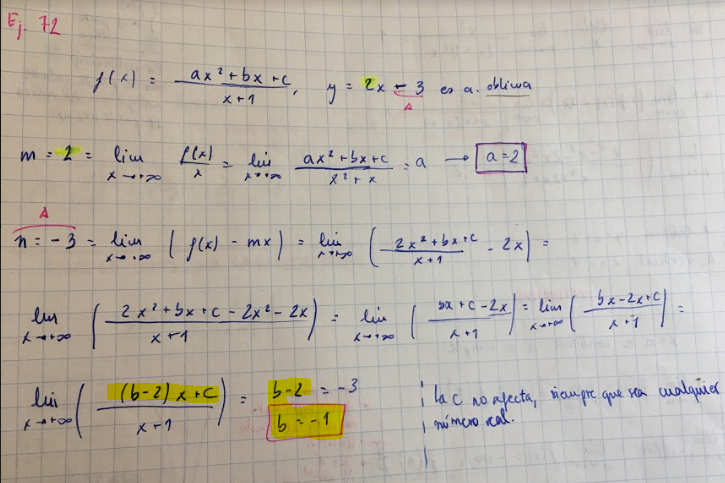 Ej. 72
f(x) = (ax²+bx+c)/(x+1), y = 2x - 3 es a. oblicua
m = 2 = lim x→+∞ f(x)/x = lim x→+∞ (ax²+bx+c)/(x²+x) = a → a=2
n = -3 = lim x→+∞ (f(x) - mx) = lim x→+∞ ((2x²+bx+c)/(x+1) - 2x) =
lim x→+∞ ((2x²+bx+c-2x²-2x)/(x+1)) = lim x→+∞ ((bx+c-2x)/(x+1)) = lim x→+∞ ((bx-2x+c)/(x+1)) =
lim x→+∞ (((b-2)x+c)/(x+1)) = b-2 = -3
b = -1
La c no afecta, siempre que sea cualquier
número real.